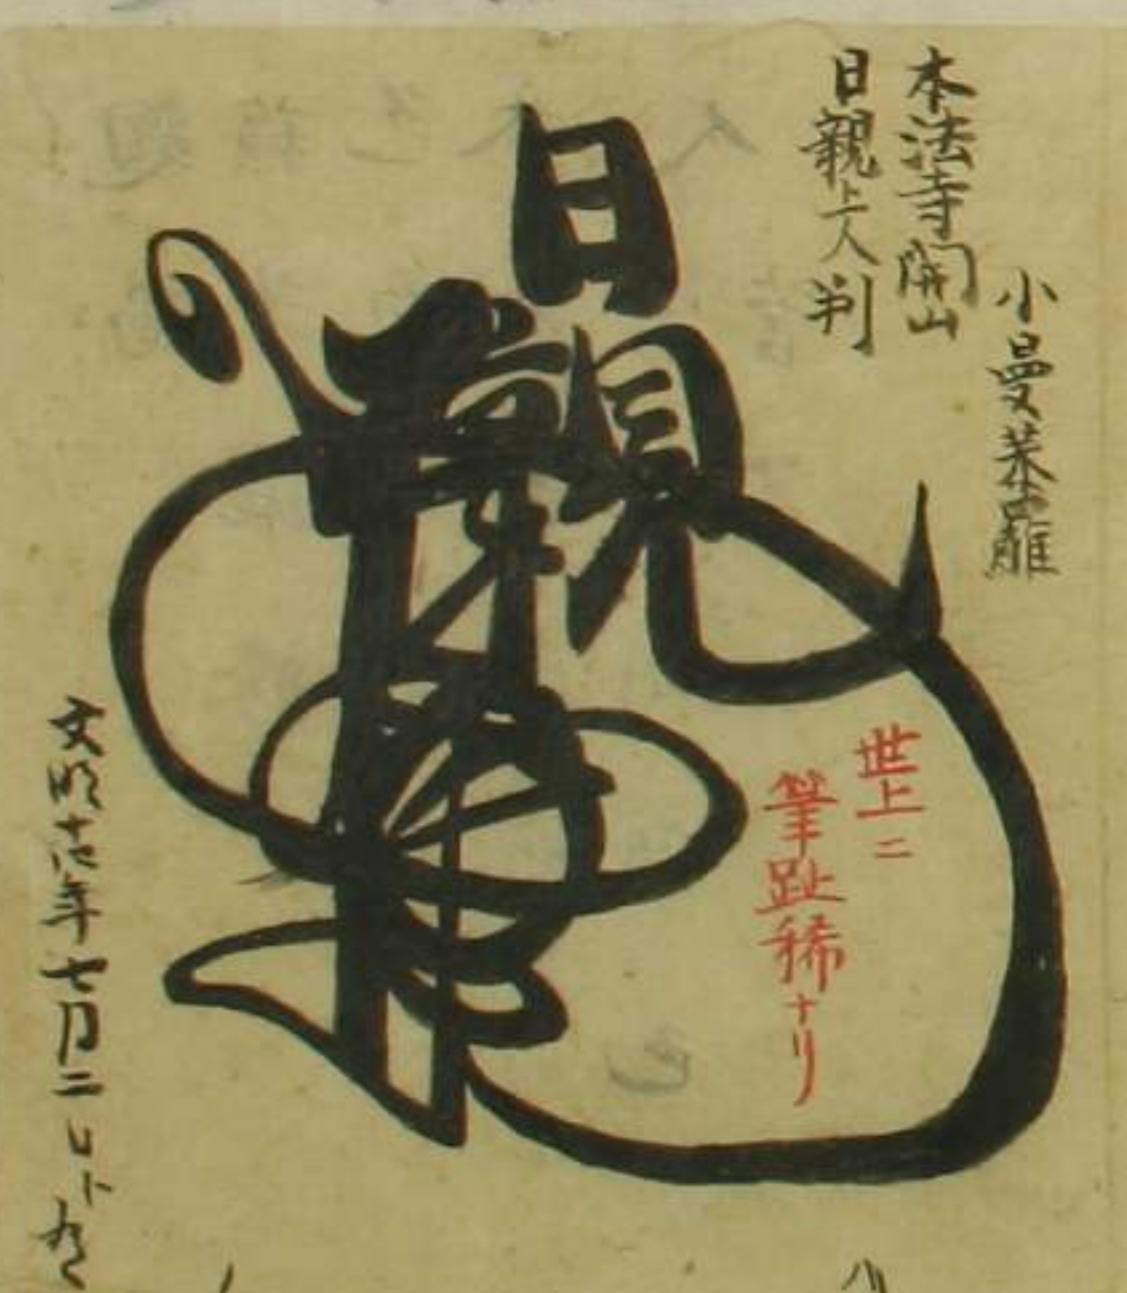 小曼荼羅
本法寺開山
日親上人判
日親
世上ニ
筆跡稀ナリ
文明十六年七月二日ト有之